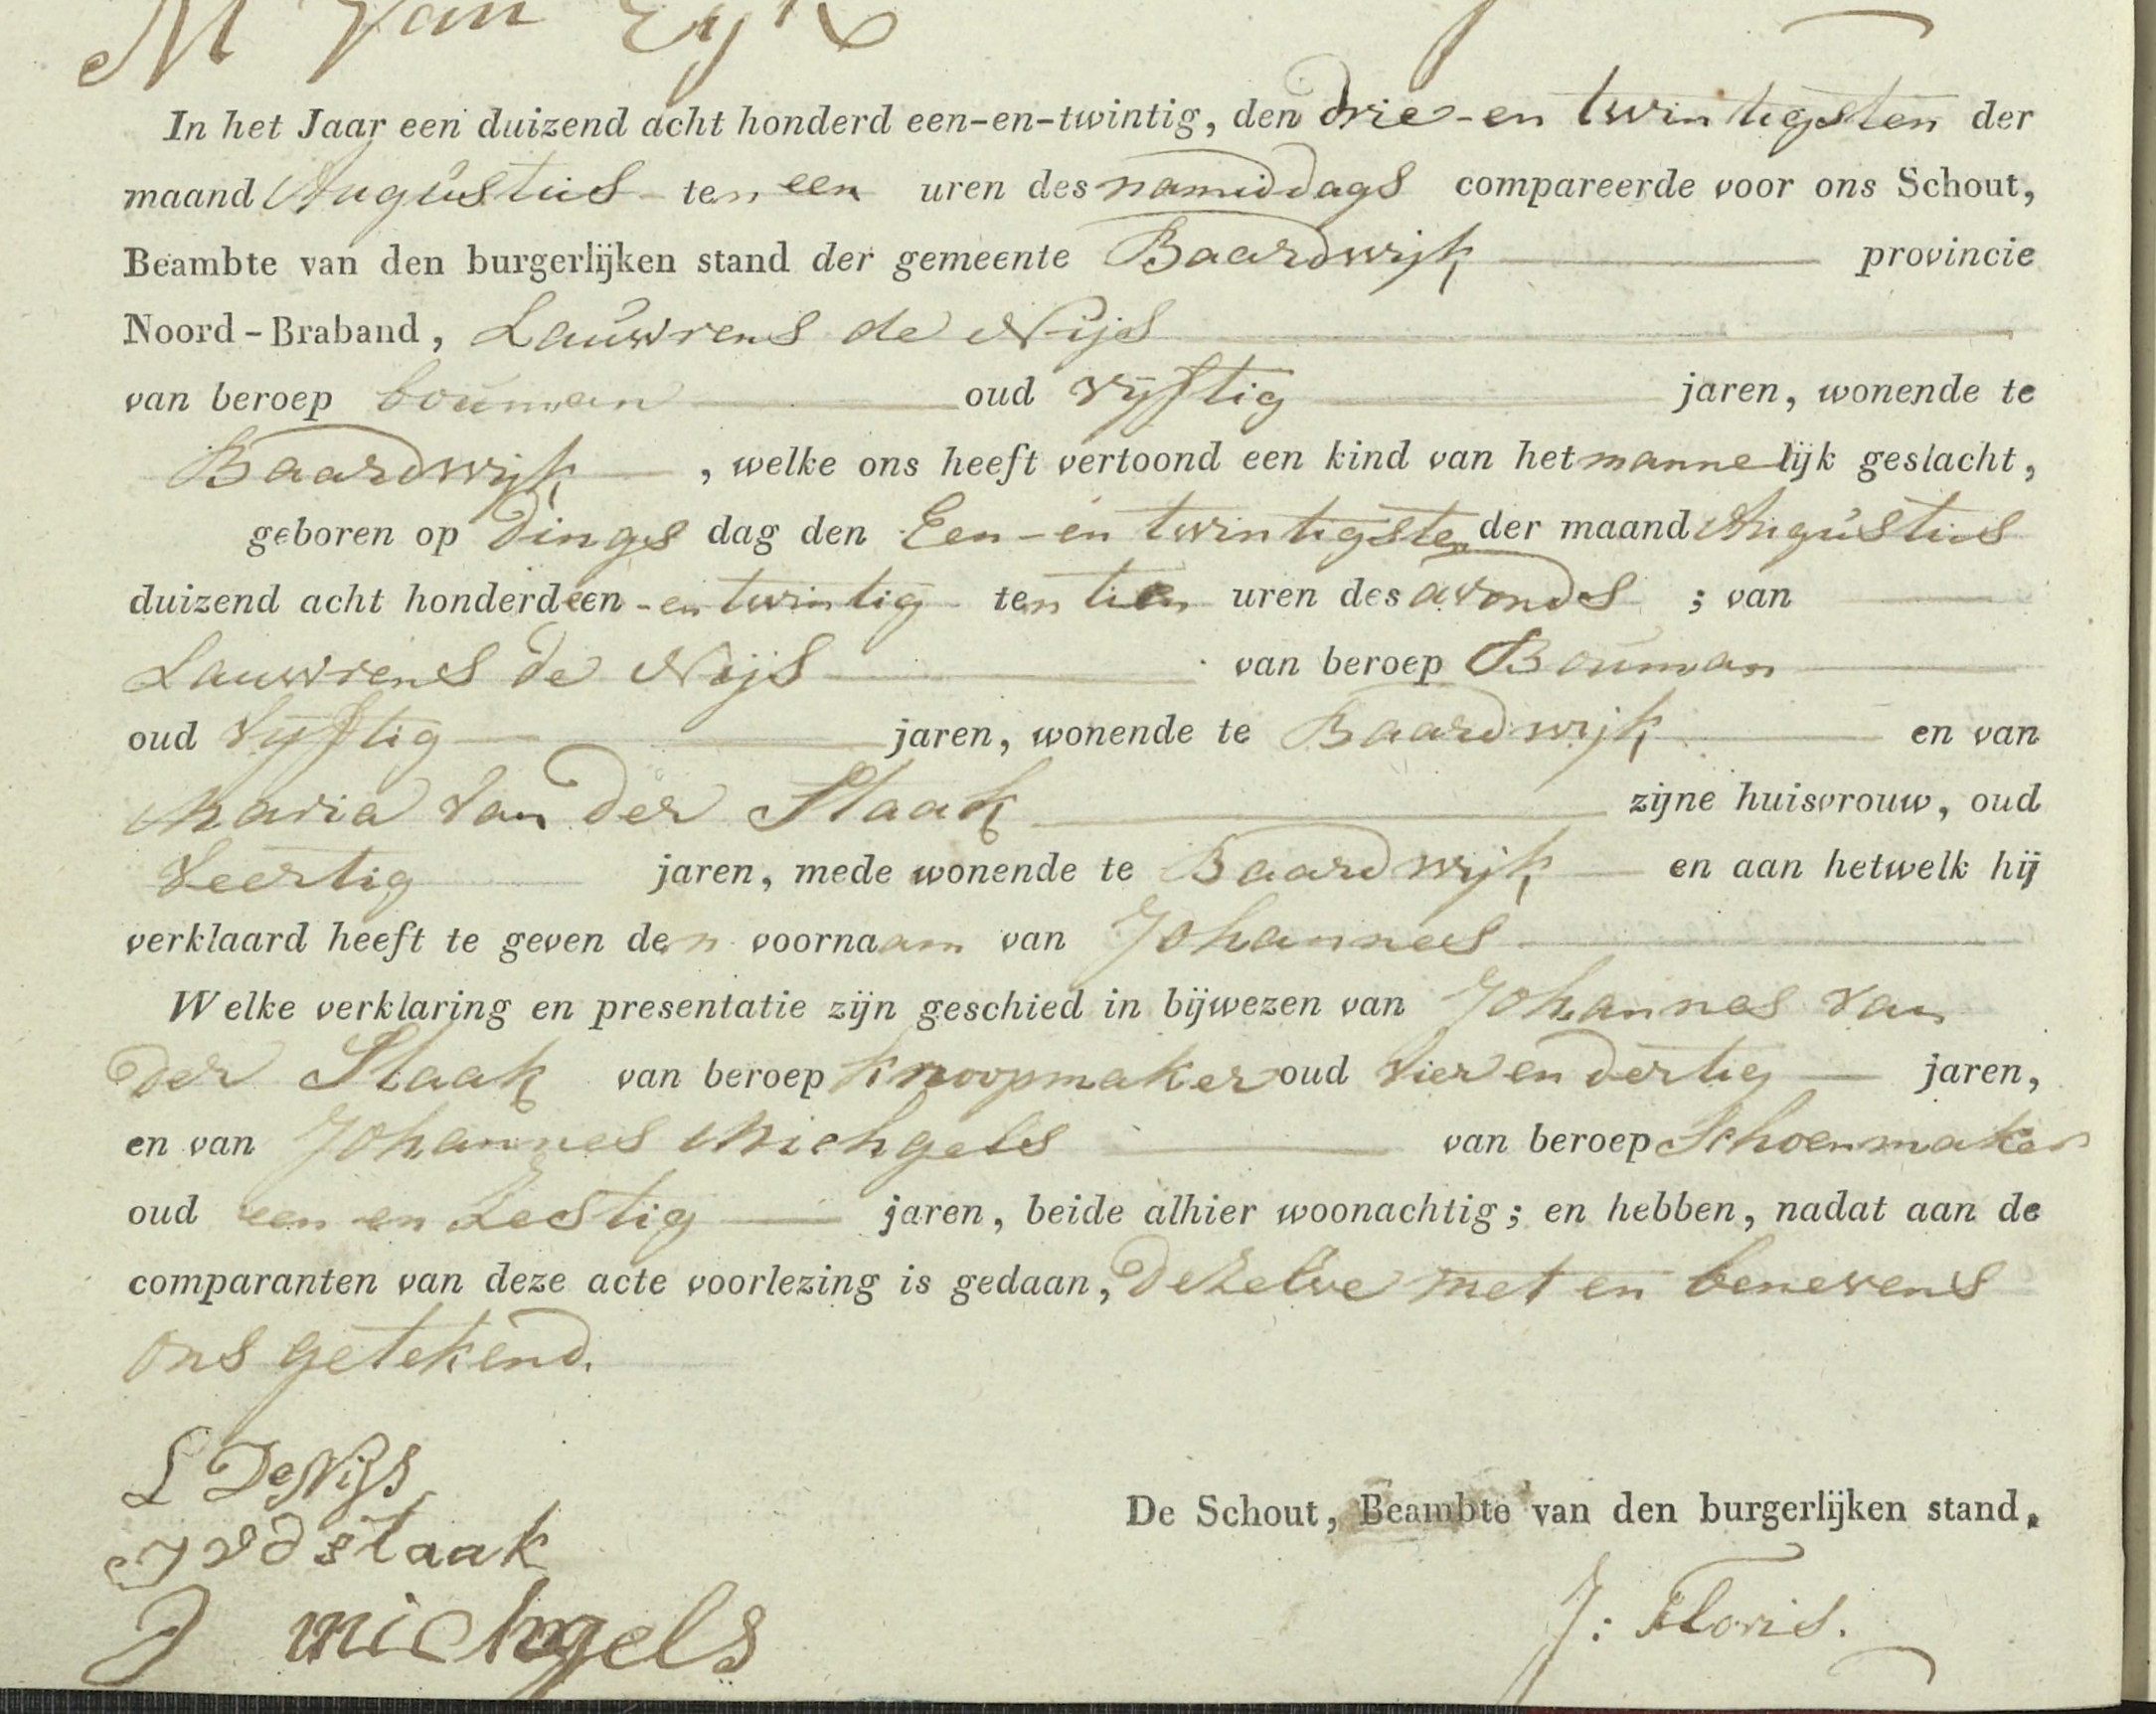 M Van Eyk
In het Jaar een duizend acht honderd een-en-twintig, den drie-en twintigsten der
maand Augustus ten een uren des namiddags compareerde voor ons Schout,
Beambte van den burgerlijken stand der gemeente Baardwijk provincie
Noord-Braband, Lauwrens de Nijs
van beroep bouman oud vijftig jaren, wonende te
Baardwijk, welke ons heeft vertoond een kind van het mannelijk geslacht,
geboren op Dings dag den Een-en twintigsten der maand Augustus
duizend acht honderd een-en twintig ten tien uren des avonds ; van
Lauwrens de Nijs van beroep Bouman
oud Vijftig jaren, wonende te Baardwijk en van
Maria Van der Staak zijne huisvrouw, oud
Veertig jaren, mede wonende te Baardwijk en aan hetwelk hij
verklaard heeft te geven den voornaam van Johannes
Welke verklaring en presentatie zijn geschied in bijwezen van Johannes Van
der Staak van beroep Knoopmaker oud Vier en dertig jaren,
en van Johannes Michgels van beroep Schoenmaker
oud een en Zestig jaren, beide alhier woonachtig; en hebben, nadat aan de
comparanten van deze acte voorlezing is gedaan, dezelve met en benevens
ons getekend.
L DeNijs
J V D staak
De Schout, Beambte van den burgerlijken stand.
J michgels
J: Floris.